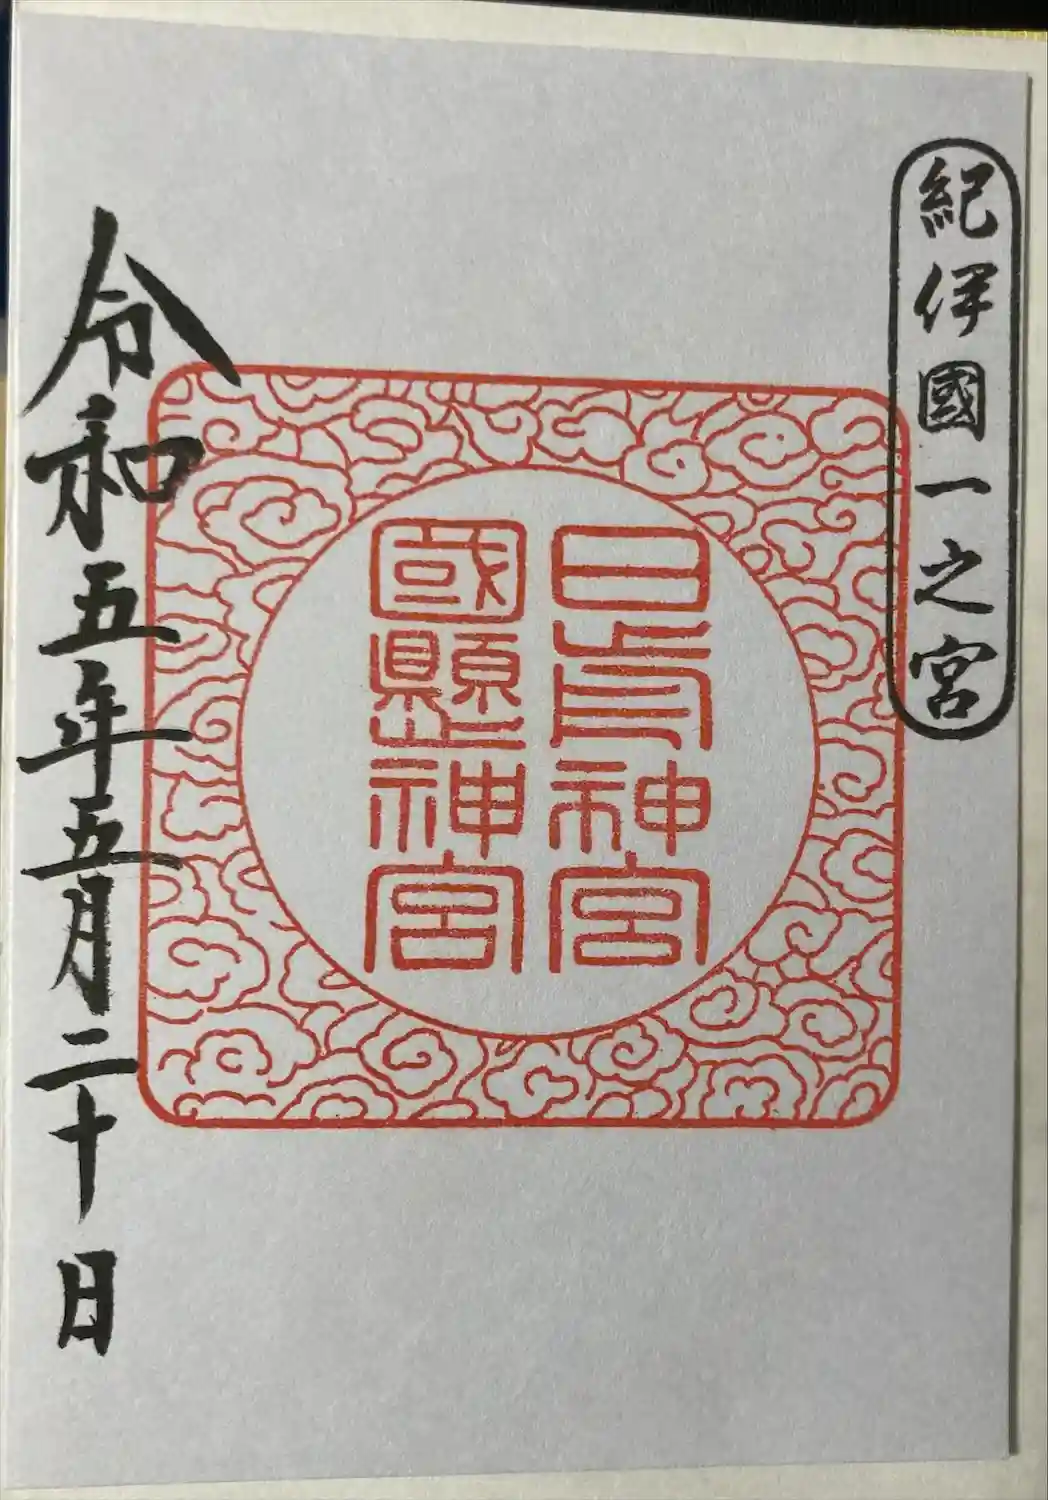 紀伊國一之宮
日前神宮
國懸神宮
令和五年五月二十日